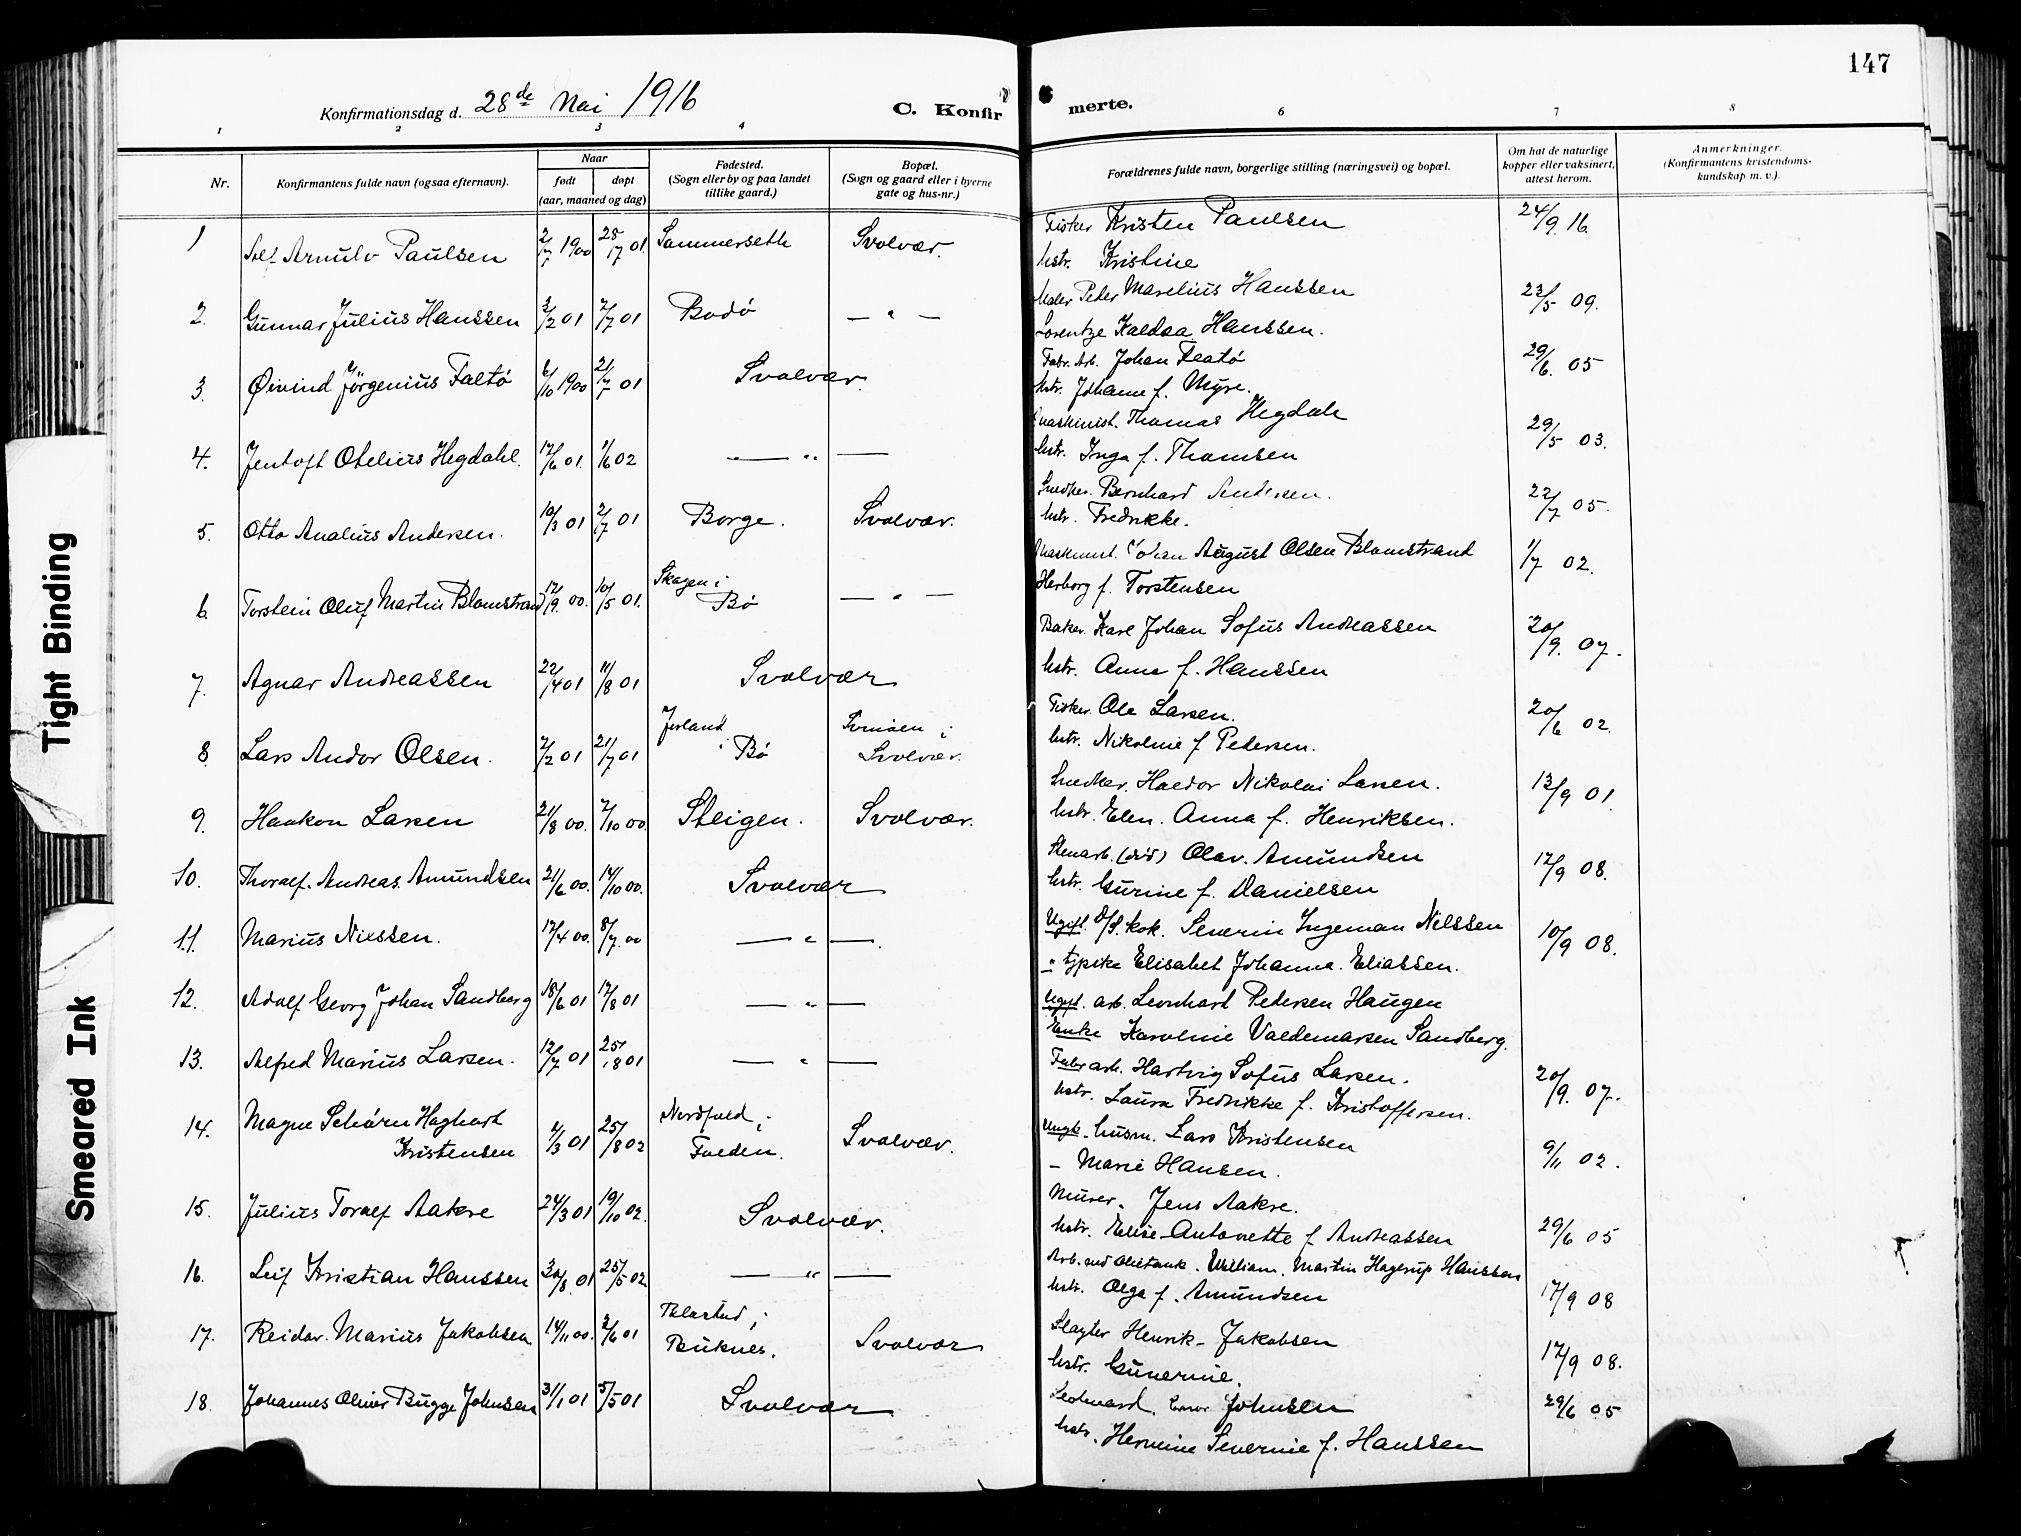 147
Konfirmationsdag d. 28de Mai 1916
C. Konfirmerte.
1 2 3 4 6 7 8
Nr.
Konfirmantens fulde navn (ogsaa efternavn).
Naar
født døpt
(aar, maaned og dag)
Fødested.
(Sogn eller by og paa landet
tillike gaard.)
Bopæl.
(Sogn og gaard eller i byerne
gate og hus-nr.)
Forældrenes fulde navn, borgerlige stilling (næringsvei) og bopæl.
Om hat de naturlige
kopper eller vaksinert,
attest herom.
Anmerkninger.
(Konfirmantens kristendoms-
kundskap m. v.).
1 Alf Arnulv Paulsen 2/7 1900 01 Sommerseth Svolvær. Fisker Kristen Paulsen 24/9 16
hstr. Kristine
2. Gunnar Julius Hanssen 3/2 01 7/7 01 Bodø — " — Maler Peder Marelius Hanssen 23/5 09.
Lorentze Kaldaa Hanssen.
3. Øivind Jørgenius Faltø 6/10 1900 21/7 01 Svolvær. Fabr. Arb. Johan Flatø 29/6. 05
hstr. Johanne f. Myre.
4. Jentoft Otelius Hegdahl. 17/6 01. 1/6 02 — " — Maskinist. Thomas Hegdahl 29/5 03.
hstr. Inga f. Thomsen
5. Otto Analius Andersen. 10/3 01 2/7 01 Borge. Svolvær. Snedker. Bernhard Andersen. 22/7 05.
hstr. Fredrikke.
6. Torstein Oluf Martin Blomstrand 12/9. 00. 10/5 01. Skagen i Bø — " — Maskinist. Johan August Olsen Blomstrand 1/7 02.
Herborg f. Torstensen
7. Agnar Andreassen 22/4 01 11/8 01 Svolvær Baker. Karl Johan Sofus Andreassen 20/9. 07.
hstr. Anna f. Hanssen
8. Lars Andor Olsen. 7/2 01 21/7 01 Jorland i Bø Svinøen i Svolvær. Fisker. Ole Larsen. 20/6 02.
hstr. Nikoline f Pedersen.
9. Haakon Larsen 21/8 00. 7/10 00. Steigen. Svolvær. Snedker. Haldor Nikolai Larsen. 13/9 01.
hstr. Elen. Anna f. Henriksen.
10. Thoralf. Andreas. Amundsen 21/6 00. 14/10 00. Svolvær Stenarb. (død) Olav. Amundsen 17/9 08.
hstr. Gurine f. Danielsen
11. Marius Nilssen. 17/4 00. 8/7. 00 — " —. Ugift. D/S. kok. Severin Ingeman Nilssen 10/9 08.
" pike Elisabet Johanna. Eliassen.
12. Adolf Georg Johan Sandberg 18/6 01 17/8 01 — " — Ugift. arb. Leonhard Pedersen Haugen
Enke Karoline Valdemarsen Sandberg.
13. Alfred Marius Larsen. 12/7 01 25/8 01 — " — Fabr arb. Hartvig Sofus Larsen. 20/9. 07.
hstr. Laura Fredrikke f. Kristoffersen.
14. Magne Schørn Hagbart
Kristensen 4/3 01 25/8 02 Nordfold i Folden. Svolvær. Ungk. husm. Lars Kristensen 9/11 02.
– Marie Hansen.
15. Julius Toralf Aakre 24/3 01 19/10 02. Svolvær. Murer. Jens Aakre.
hstr. Elise-Antonette f Andreassen 29/6 05
16. Leif Kristian Hanssen 30/8. 01 25/5 02. — " — Arb. ved Olietank. William. Martin Hagerup Hanssen
hstr. Olga f. Amundsen 17/9 08
17. Reidar. Marius Jakobsen 14/11 00. 2/6 01 i Buknes. Svolvær Slagter Henrik Jakobsen 17/9 08.
hstr. Gunerine.
18. Johannes Oliver Bugge Johnsen 31/1 01 5/5 01 Svolvær Johnsen 29/6 05
hstr. Hermine Severine f. Hanssen
Tight Binding
Smeared Ink